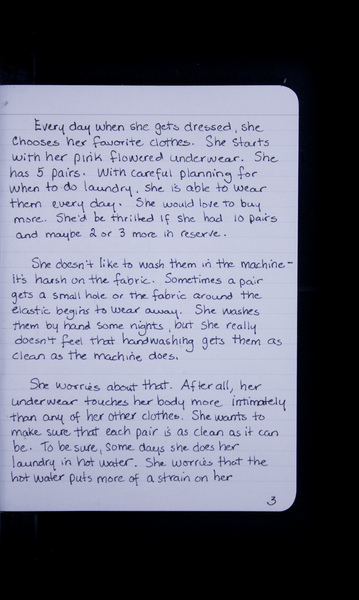 Every day when she gets dressed, she
chooses her favorite clothes. She starts
with her pink flowered underwear. She
has 5 pairs. With careful planning for
when to do laundry, she is able to wear
them every day. She would love to buy
more. She'd be thrilled if she had 10 pairs
and maybe 2 or 3 more in reserve.
She doesn't like to wash them in the machine-
it's harsh on the fabric. Sometimes a pair
gets a small hole or the fabric around the
elastic begins to wear away. She washes
them by hand some nights, but she really
doesn't feel that handwashing gets them as
clean as the machine does.
She worries about that. After all, her
underwear touches her body more intimately
than any of her other clothes. She wants to
make sure that each pair is as clean as it can
be. To be sure, some days she does her
laundry in hot water. She worries that the
hot water puts more of a strain on her
3